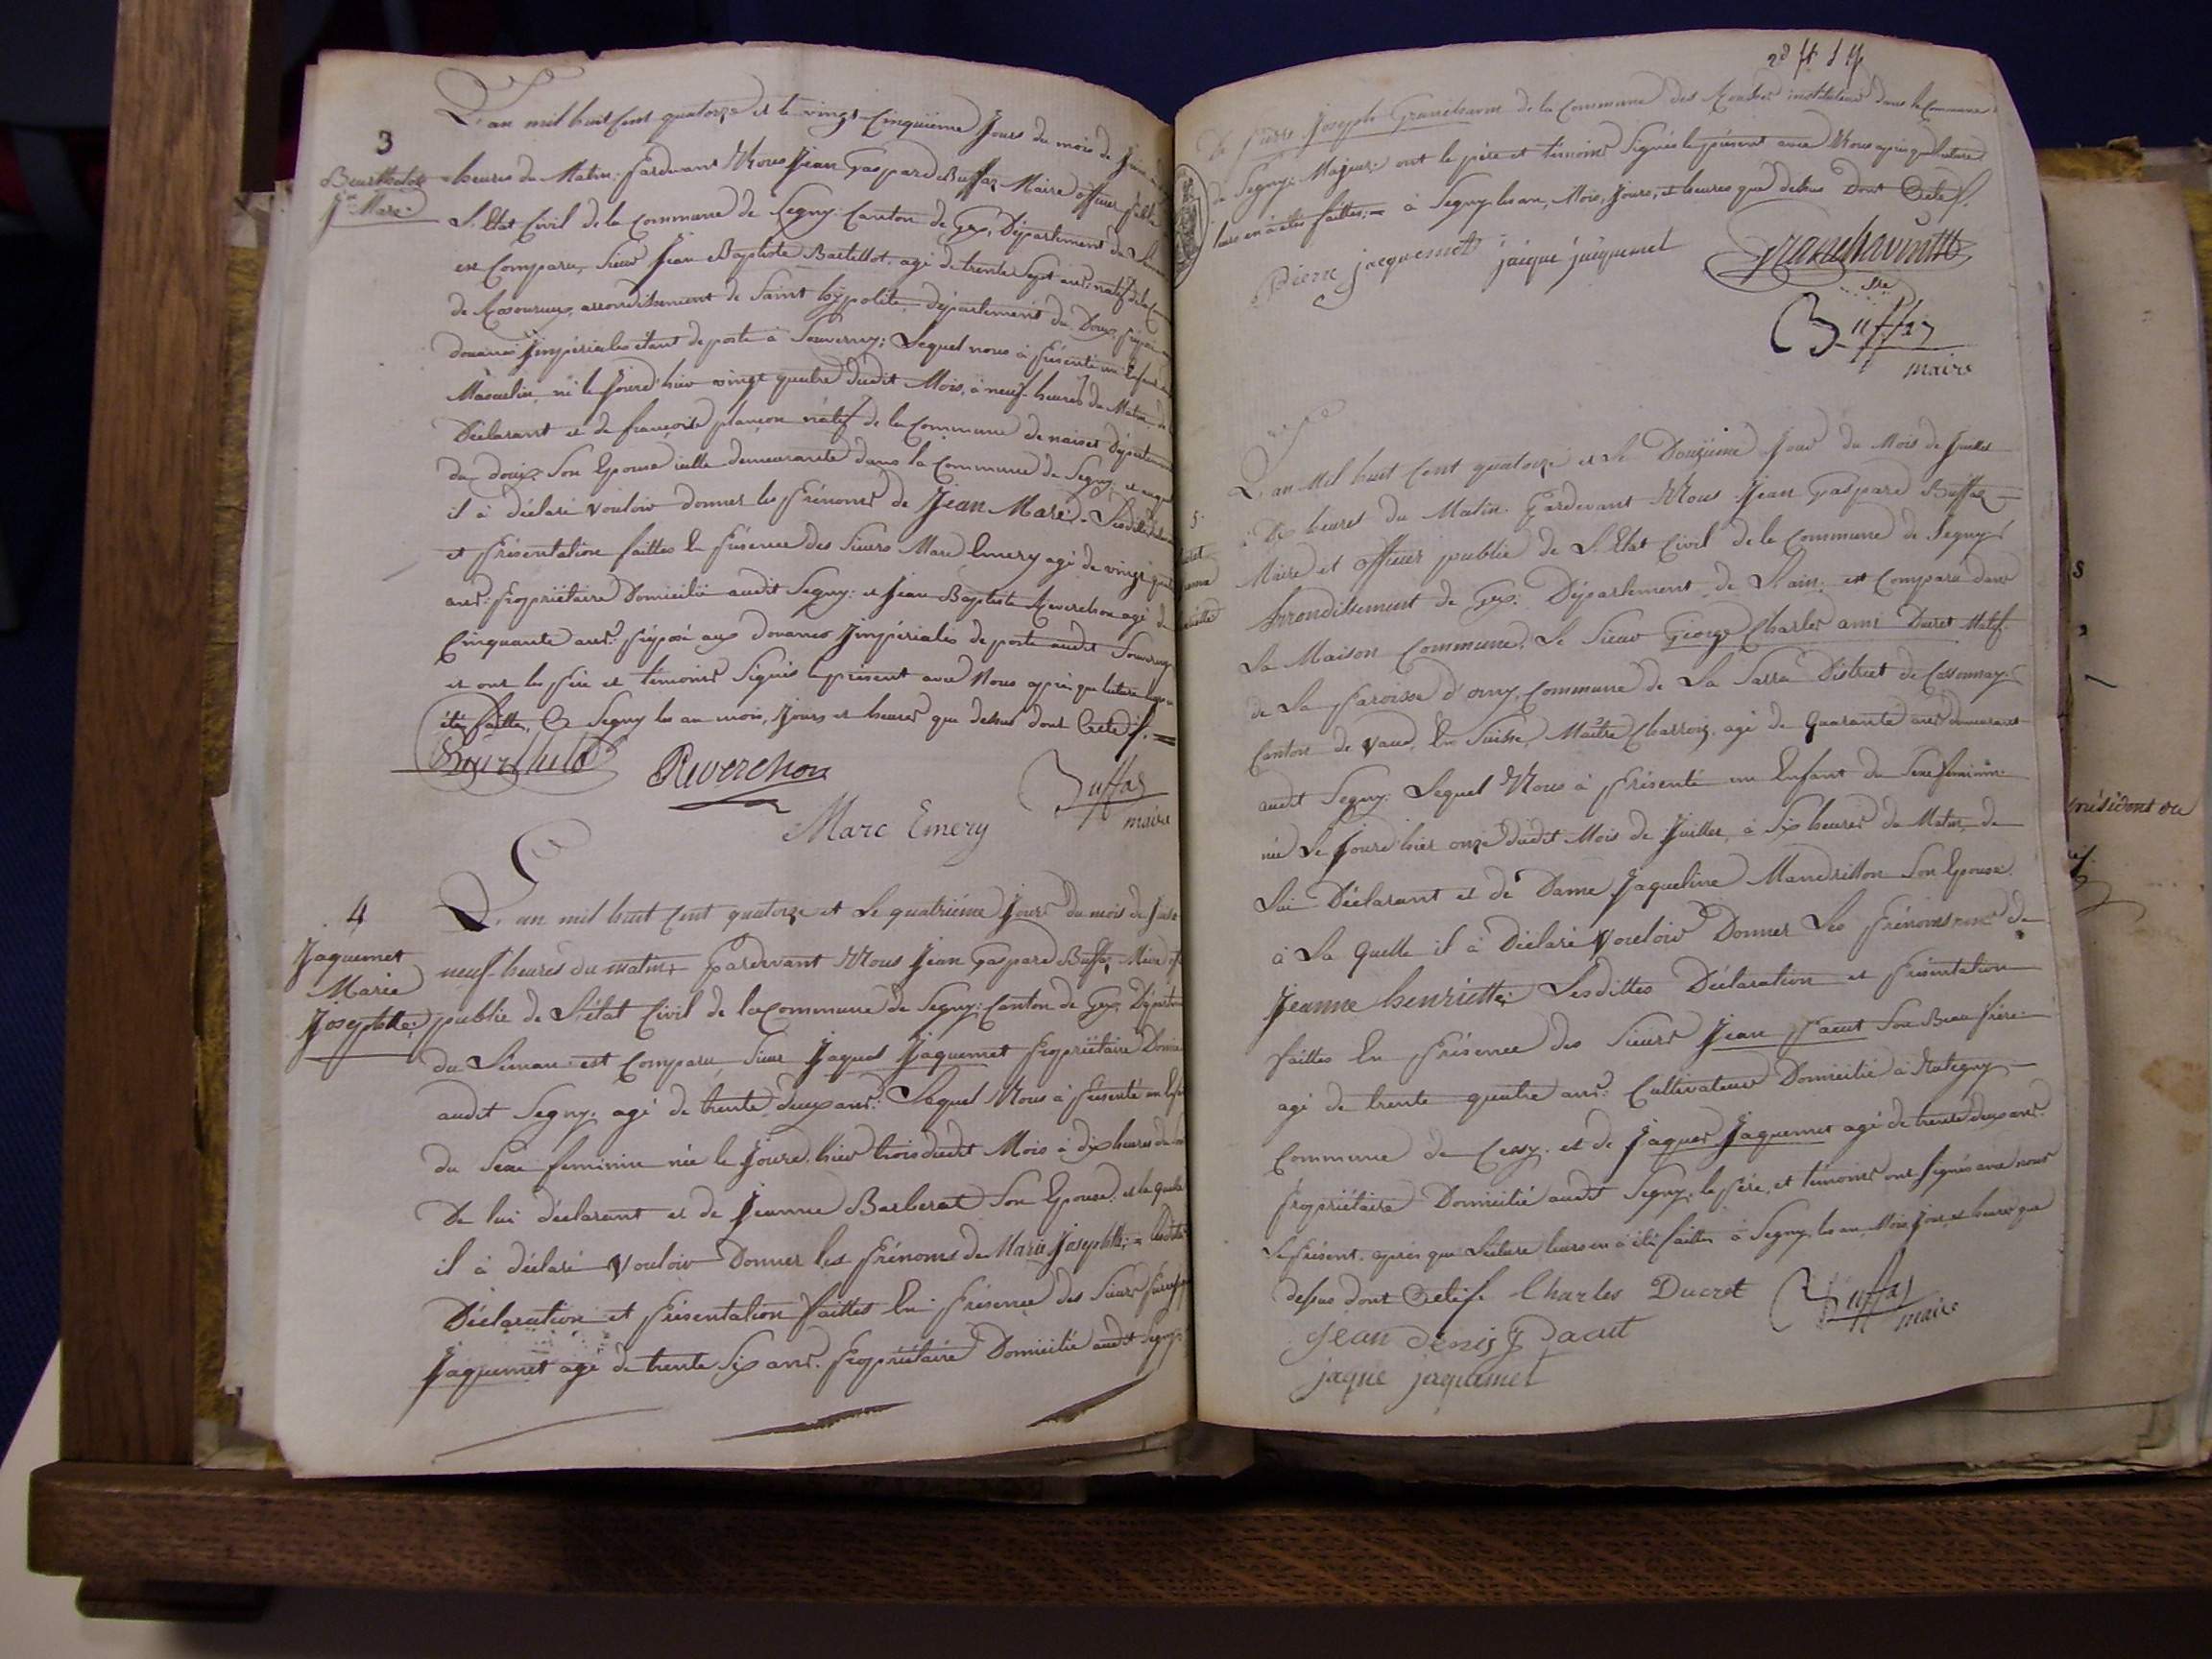 3
Jn Marc
L'an mil huit Cent quatorze et le vingt-Cinquième Jour du mois de
heures du Matin. Pardevant Nous Jean Gaspard Buffaz Maire officier
L'Etat Civil de la Commune de Segny Canton de Gex, Département du
est Comparu, Sieur Jean Baptiste Bartellot agé de trente Sept ans natif de la
de arrondissement de Saint hypolite, département du Doubs,
douanes Jmpériales étant de poste à Sauverny; Lequel nous à Présenté un Enfant
Masculin, né le Jourd'hier vingt quatre dudit Mois, à neuf heures du Matin, de
Déclarant et de françoise natif de la Commune de Département
du doubs Son Epouse icelle demeurante dans la Commune de Segny, et auquel
il à déclaré Vouloir donner les Prénoms de Jean Marc. Lesdittes
et Présentation faittes En Présence des Sieurs Marc Emery agé de vingt
ans Propriétaire Domicilié audit Segny: et Jean Baptiste Reverchon agé de
Cinquante ans Préposé aux douanes Jmpériales de poste audit Sauverny
et ont les Père et témoins Signés le présent avec Nous après que lecture
été faitte, à Segny les an mois, Jours et heures que dessus dont Acte
Reverchon
Marc Emery
Buffaz
maire
4
Jaquemet
Marie
Josephtte
L'an mil huit Cent quatorze et Le quatrième Jour du mois de
neuf heures du matin, Pardevant Nous Jean Gaspard Buffaz, Maire
public de L'état Civil de la Commune de Segny, Canton de Gex,
du Léman est Comparu Sieur Jaques Jaquemet Propriétaire
audit Segny. agé de trente deux ans: Lequel Nous à Présenté un
du Sexe feminin née le Jourd'hier trois dudit Mois à dix heures du
De lui déclarant et de Jeanne Barberat Son Epouse et la quelle
il à déclaré Vouloir Donner les Prénoms de Marie Josephtte;
Déclaration et Présentation faittes En Présence des Sieurs
Jaquemet agé de trente Six ans. Propriétaire Domicilié audit Segny
De Pierre Joseph Grancharm de la Commune des Rousses instituteur dans la Commune
de Segny: Majeur: ont le père et témoins Signés le présent avec Nous après que lecture
leur en à été faitte; à Segny les an, Mois, Jours, et heures que dessus Dont Acte
Pierre jacquemet jaque jaquemet
Buffaz
maire
5
L'an Mil huit Cent quatorze et Le Douzième Jour du Mois de Juillet
à Dix heures du Matin. Pardevant Nous Jean Gaspard Buffaz
Maire et officier public de L'Etat Civil de la Commune de Segny
Arrondissement de Gex: Département de L'ain: est Comparu dans
La Maison Commune, Le Sieur George Charles ami Ducret Natif
de La Paroisse d'orny, Commune de La Sarra District de Cossonay
Canton de Vaud, En Suisse, Maître Charron, agé de Quarante ans demeurant
audit Segny. Lequel Nous à Présenté un Enfant du Sexe feminin
née Le Jourd'hier onze dudit Mois de Juillet, à Six heures du Matin, de
Lui Déclarant et de Dame Jaqueline Mandrillon Son Epouse.
à La Quelle il à Déclaré Vouloir Donner Les Prénoms de
Jeanne henriette; Lesdittes Déclaration et Présentation
faittes En Présence des Sieurs Jean Pacut Son Beau frère
agé de trente quatre ans: Cultivateur Domicilié à
Commune de Cessy. et de Jaques Jaquemet agé de trente deux ans.
Propriétaire Domicilié audit Segny, le Père, et témoins ont Signés avec nous
Le Présent. après que Lecture leurs en à été faitte à Segny, les an, Mois, Jour, et heures que
dessus dont Acte Charles Ducret Buffaz
maire
jean denis Pacut
jaque jaquemet